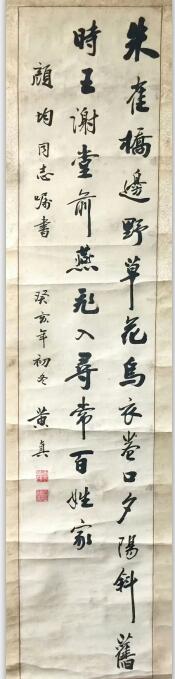 朱雀橋邊野草花烏衣巷口夕陽斜舊
時王謝堂前燕飛入尋常百姓家
顔均同志嘱書 癸亥年初冬 黄真